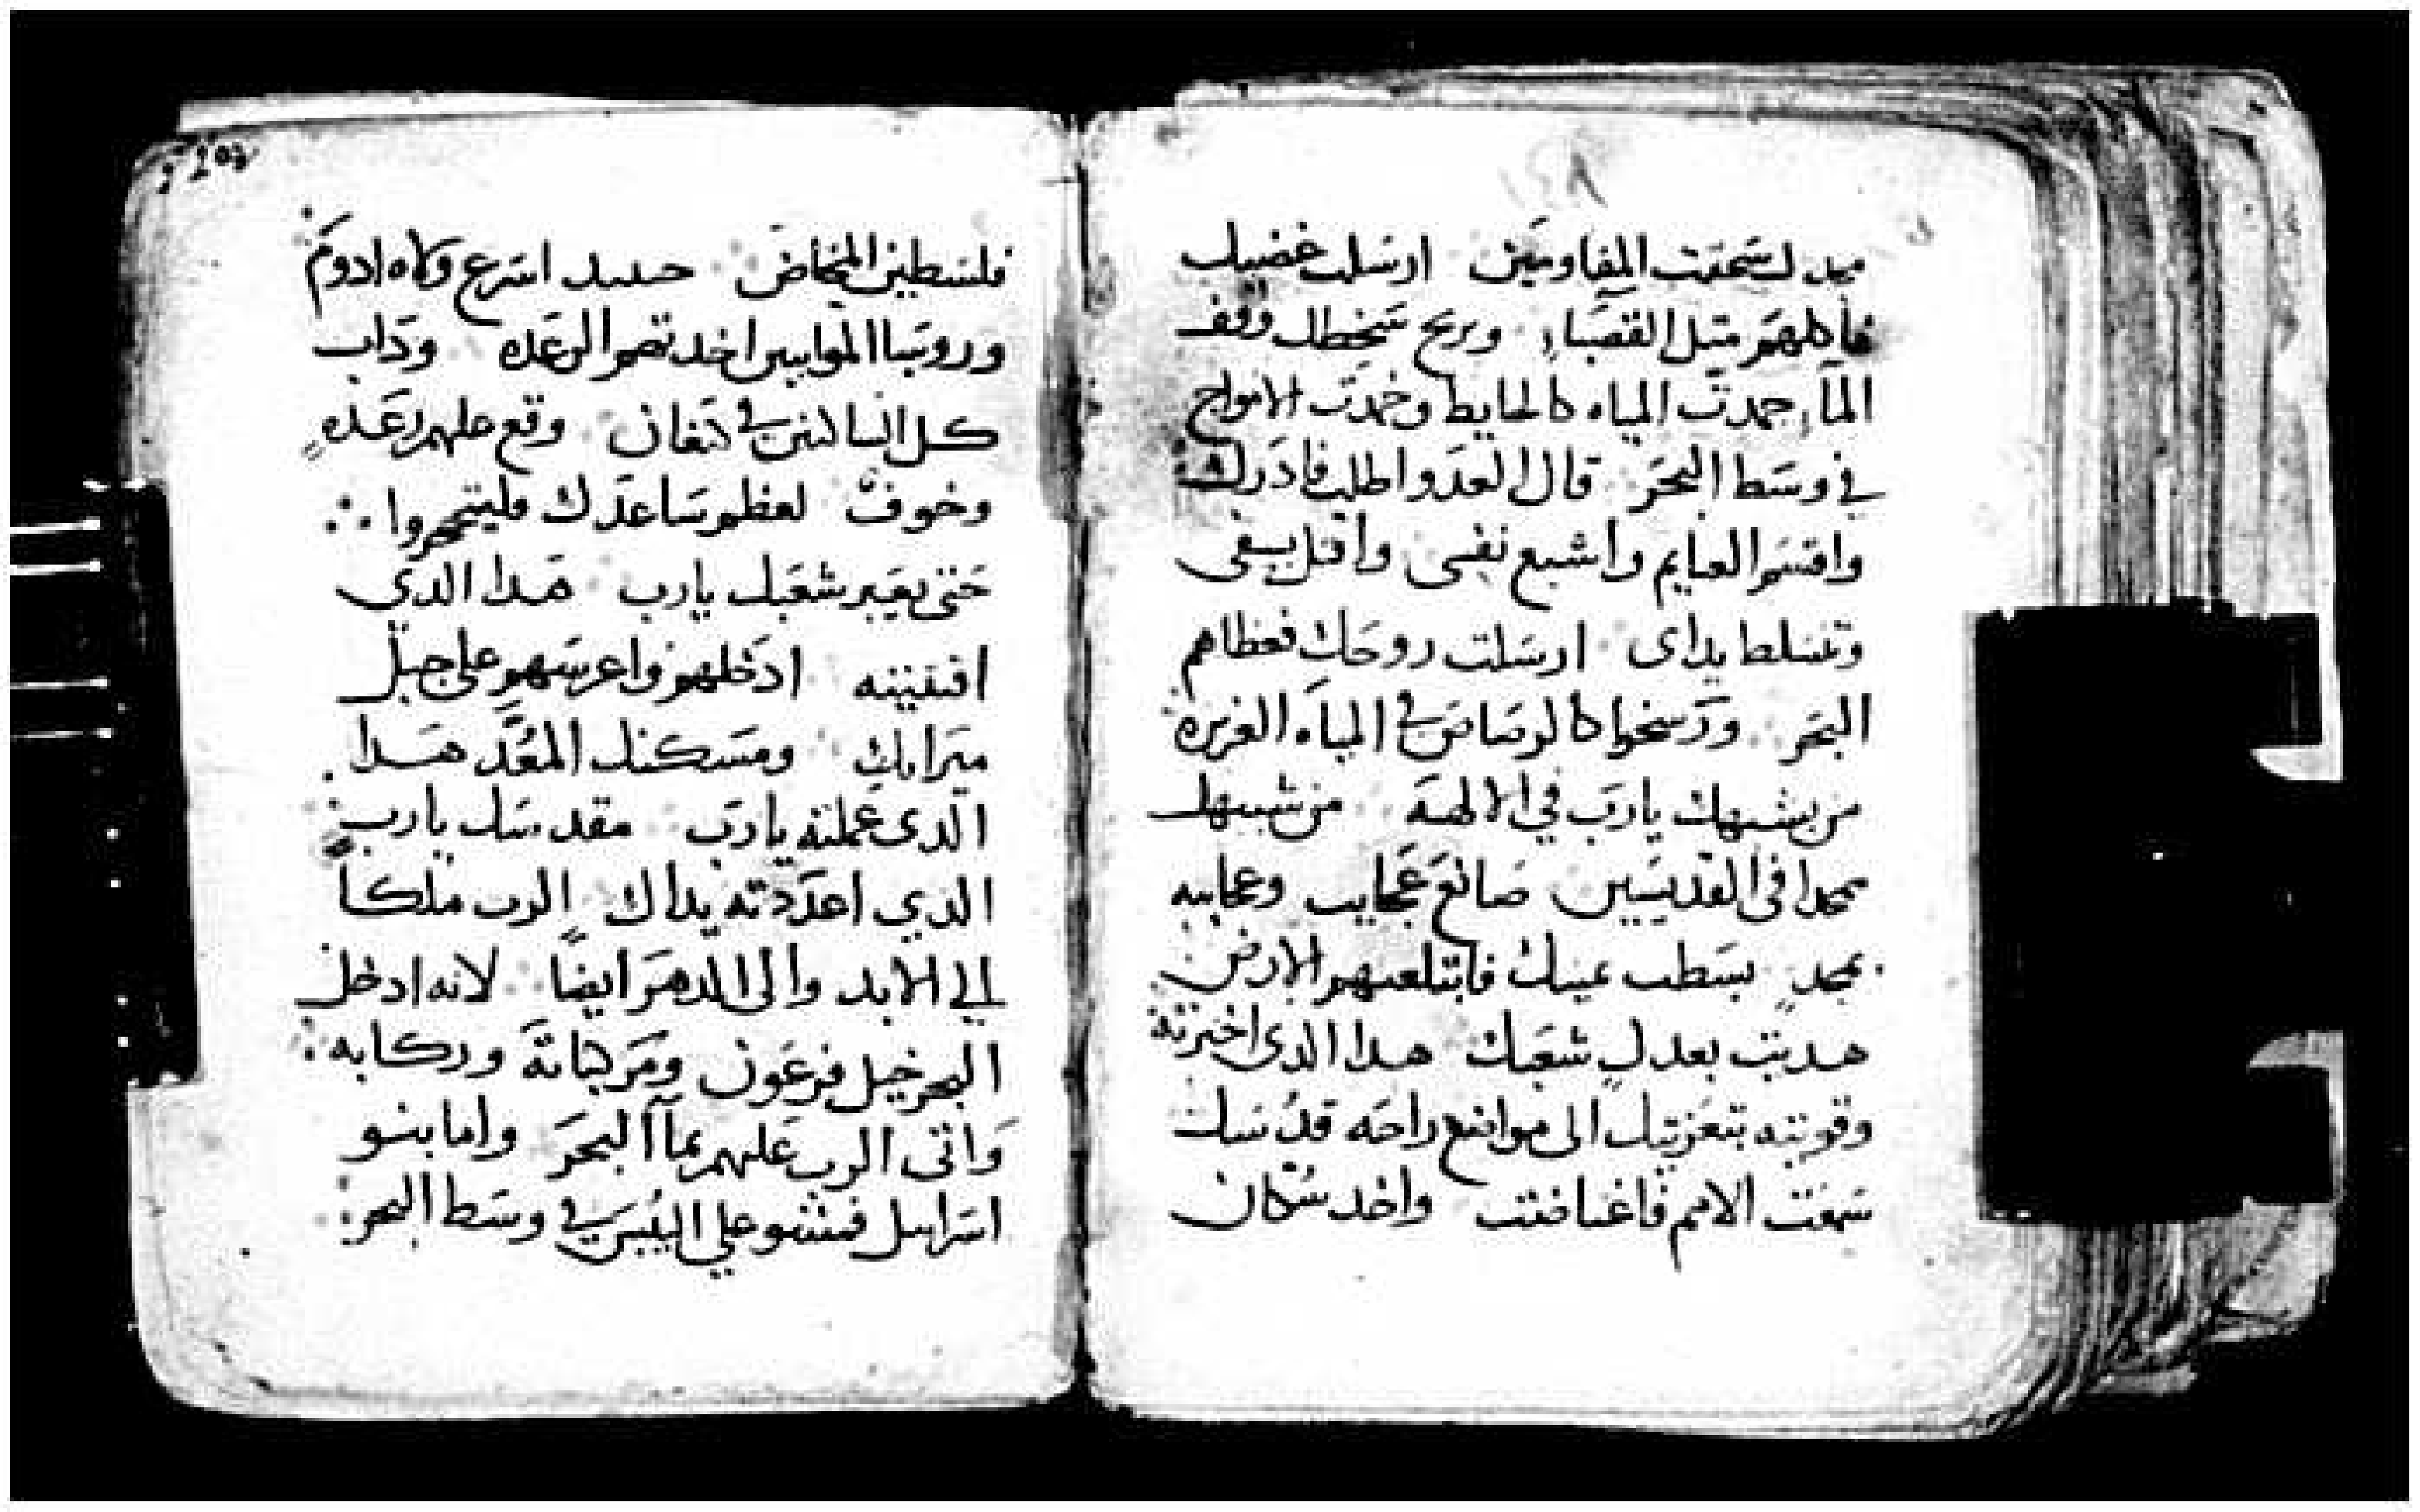 ١٤٨
مجدك سحقت المقاومين ارسلت غضبك
فاكلهم متل القصباء وبريح سخطك وقف
الماء جمدت المياه كالحايط وجمدت الامواج
في وسط البحر قال العدو اطلب فادرك
واقسم الغنايم واشبع نفسي واقتل بسيفي
وتتسلط يداي ارسلت روحك فغطاهم
البحر ورسخوا كالرصاص في المياه الغزيره
من يشبهك يارب في الالهه من شبيهك
ممجدا في القديسين صانع عجايب وعجايبه
بمجد بسطت يمينك فابتلعتهم الارض
هديت بعدل شعبك هدا الدي اخترته
وقويته بتعزيتك الى مواضع راحه قدسك
سمعت الامم فاغتاضت واخد سكان
فلسطين المخاض حينيد اسرع ولاه ادوم
وروسا الموابيين اخدتهم الرعده وداب
كل الساكنين في كنعان وقع عليهم رعده
وخوف لعظم ساعدك فليتحجروا
حتى يعبر شعبك يارب هدا الدي
اقتنيته ادخلهم واغرسهم على جبل
ميراتك ومسكنك المعد هدا
الدي عملته يارب مقدسك يارب
الدي اعددته يداك الرب ملكاً
الي الابد والى الدهر ايضاً لانه ادخل
البحر خيل فرعون ومركباته وركابه
واتى الرب عليهم بماء البحر واما بنو
اسراييل فمشو علي اليبس في وسط البحر